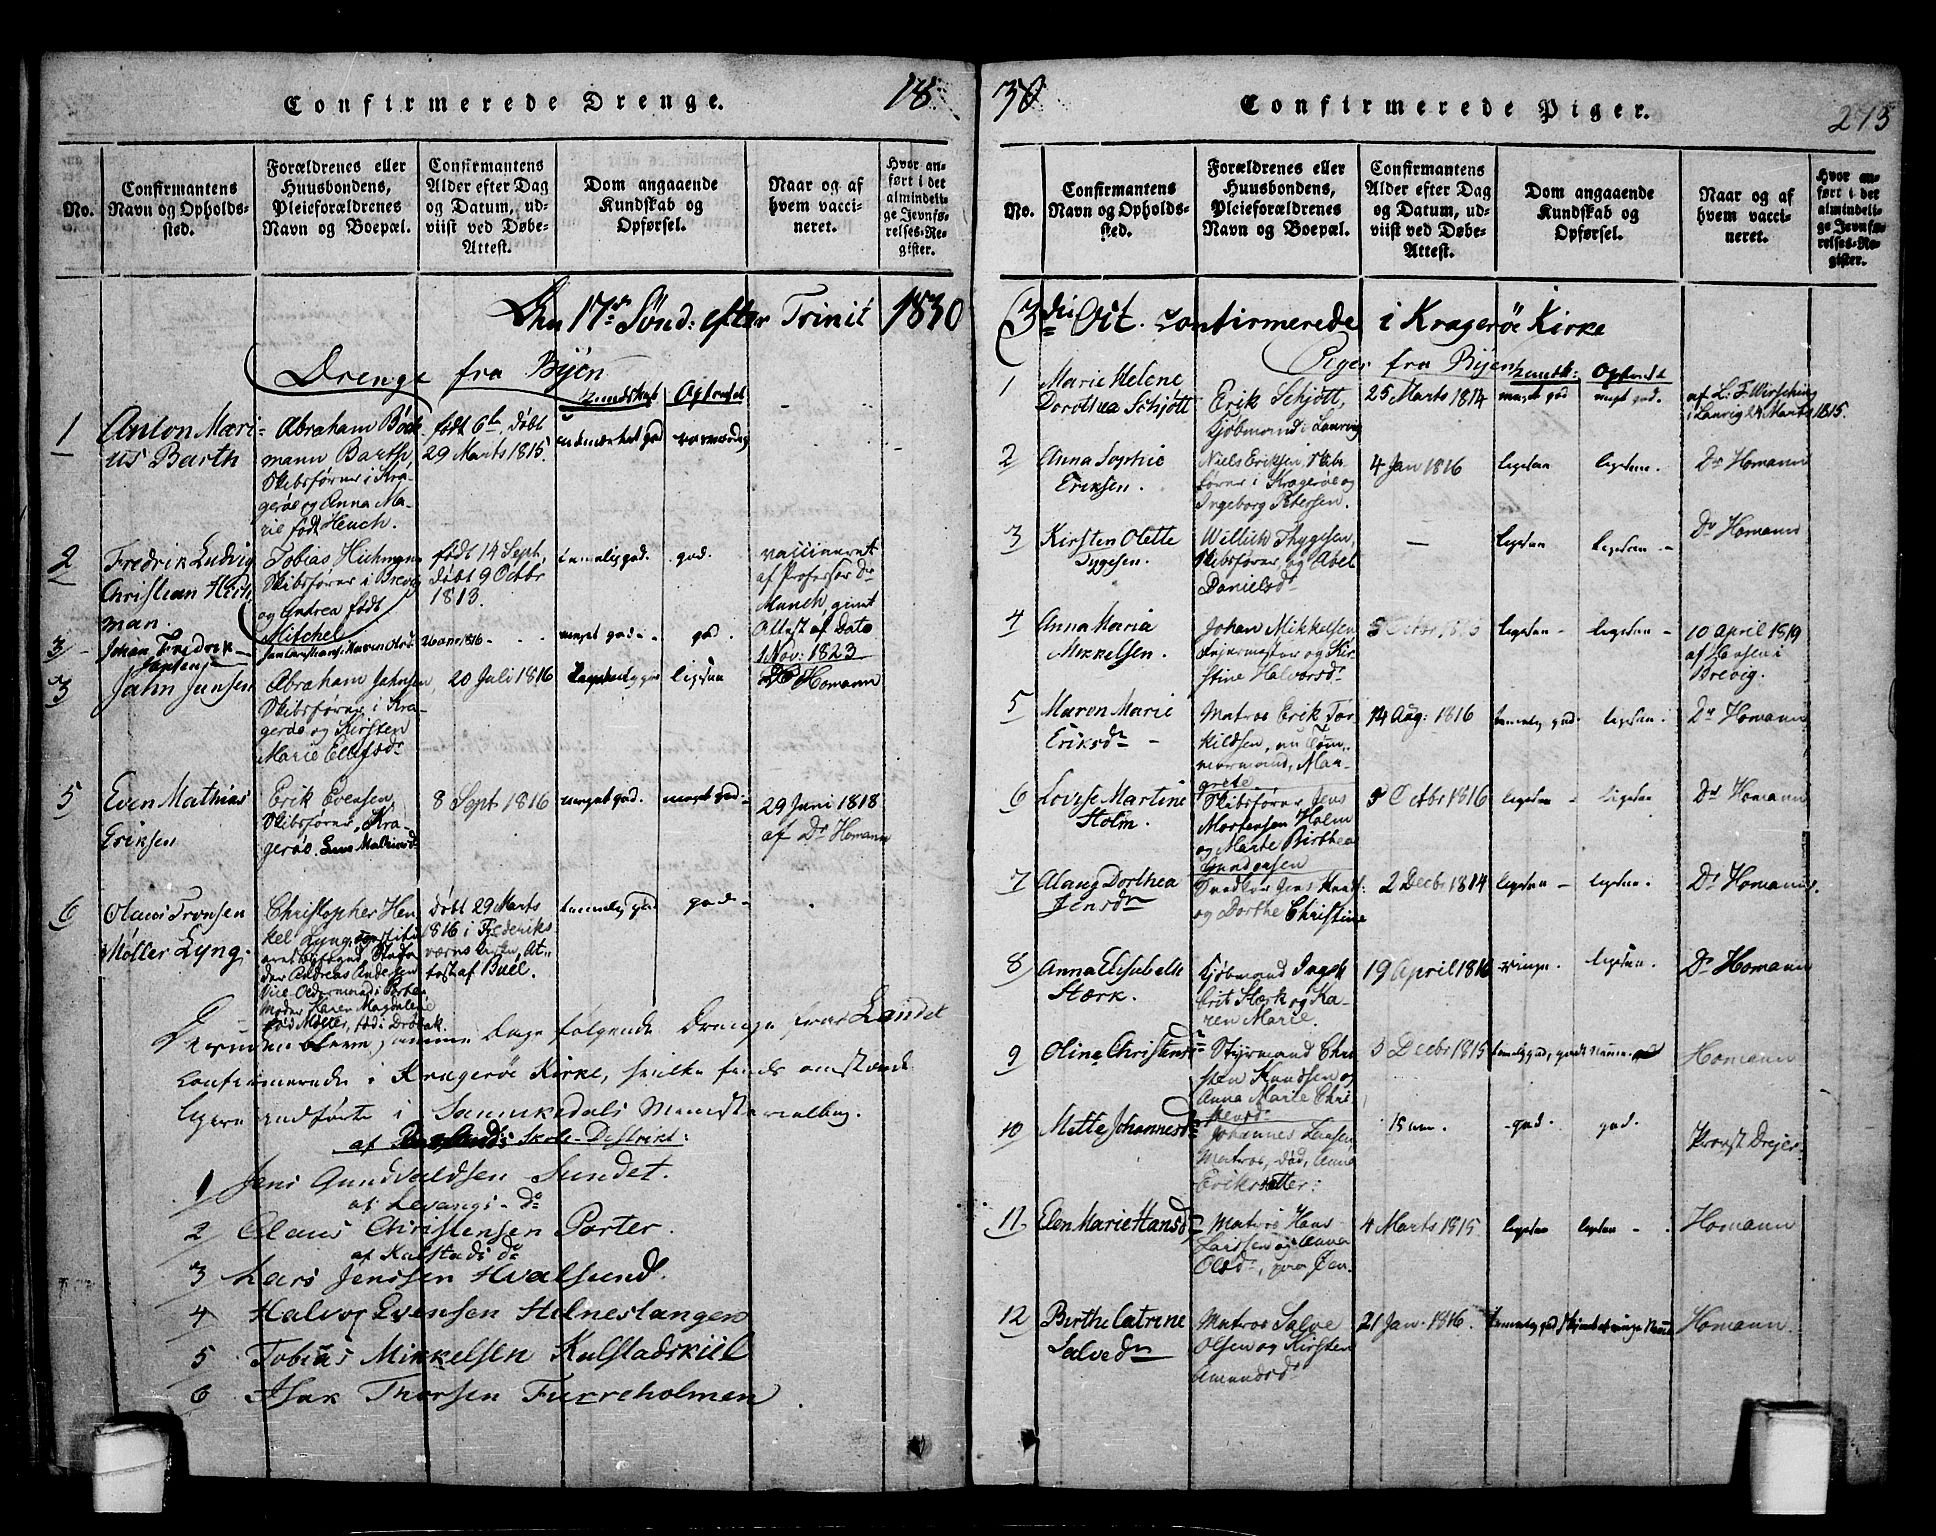 Confirmerede Drenge.
18
No.
Confirmantens
Navn og Opholds-
sted.
Forældrenes eller
Huusbondens,
Pleieforældrenes
Navn og Boepæl.
Confirmantens
Alder efter Dag
og Datum, ud-
viist ved Døbe-
Attest.
Dom angaaende
Kundskab og
Opførsel.
Naar og af
hvem vacci-
neret.
Hvor an-
ført i det
almindeli-
ge Jevnfø-
relses-Re-
gister.
Den 17de Sønd: efter Trinit 1830
Drenge fra Byen
Kundskab Opførsel
1
Anton Mari-
us Barth
Abraham Bøck-
mann Barth,
Skibsfører i Kra-
gerøe og Anna Ma-
rie født Heuch.
født 6te, døbt
29 Marts 1815.
udmærket god
2
Fredrik Ludvig
Christian Hich-
man.
Tobias Hichmann
Skibsfører i Brevig
og Andrea født
Mitchel
født 14 Sept.
døbt 9 Octbr
1813.
temmelig god.
god.
vaccineret
af Professor Dr
Munch, givet
Attest af Dato
1 Nov: 1823
3
Johan Fredrik
Jansen
26 apr 1816
meget god
god.
3
Jahn Jansen
Abraham Jahnsen,
Skibsfører i Kra-
gerøe og Kirsten
Marie Ellefsdr
20 Juli 1816
ligesaa
Dr Homann
5
Even Mathias
Eriksen
Erik Evensen
Skibsfører, Kra-
gerøe.
8 Sept. 1816
meget god.
meget god
29 Juni 1818
af Dr Homann
6
Olaus Tronsen
Møller Lyng.
Christopher Hen-
kel Lyng,
der Andreas Andersen
Moder Karen Magdalene
fød Møller, fød i Drøbak.
døbt 29 Marts
1816 i Frederiks
værns Kirke, At-
test af Buel.
temmelig god
god
Desuden bleve samme Dage følgende Drenge fra Landet
Confirmerede i Kragerøe Kirke, hvilke findes omstænde
ligere indførte i Sannikedals Ministerialbog.
af Skole-District:
1 Jens Gundvaldsen Sundet.
af Levangs Do
2 Olaus Christensen Porter.
af Kalstads do
3 Lars Jenssen Hvalsund.
4 Halvor Evensen Stilnestangen
5 Tobias Mikkelsen Kalstadkiil
6 Isak Thorsen Furreholmen
30
Confirmerede Piger.
275
No.
Confirmantens
Navn og Opholds-
sted.
Forældrenes eller
Huusbondens,
Pleieforældrenes
Navn og Boepæl.
Confirmantens
Alder efter Dag
og Datum, ud-
viist ved Døbe-
Attest.
Dom angaaende
Kundskab og
Opførsel.
Naar og af
hvem vacci-
neret.
Hvor an-
ført i det
almindeli-
ge Jevnfø-
relses-Re-
gister.
(3die Oct. confirmerede i Kragerøe Kirke
Piger fra Byen
Kundsk: Opførsel
1
Marie Helene
Dorothea Schjøtt
Erik Schjøtt,
Kjøbmand i Laurvig
25 Marts 1814
meget god
meget god.
af L. F. Wirsching
i Laurvig 24 Marts 1815.
2
Anna Sophie
Eriksen.
Niels Eriksen, Skibs-
fører i Kragerøe og
Ingeborg Petersen.
4 Jan 1816
ligesaa
ligesaa.
Dr Homann
3
Kirsten Olette
Tygesen.
Willich Thygesen,
Skibsfører og Abel
Danielsdr
—
ligesaa
ligesaa
Dr Homann
4
Anna Maria
Mikkelsen.
Johan Mikkelsen
Feiermester og Kir-
stine Halvorsdr
ligesaa
ligesaa
10 April 1819
af Hansen i
Brevig.
5
Maren Marie
Eriksdr
Matros Erik Tor-
kildsen, nu Tøm-
mermand, Mar-
grete
14 Aug: 1816
temmelig god
ligesaa
Dr Homann
6
Lovise Martine
Holm.
Skibsfører Jens
Mortensen Holm
og Marte Birthea
Gundersen
5 Octbr 1816
ligesaa
ligesaa
Dr Homann
7
Alang Dorthea
Jensdr
og Dorthe Christine
2 Decbr 1814
ligesaa
ligesaa.
Dr Homann.
8
Anna Elisabeth
Stærk.
Kjøbmand Ingeb
brit Stærk og Ka-
ren Marie.
19 April 1816
ringe.
ligesaa.
Dr Homann
9
Oline Christensdr
Styrmand Chri
sten Knudsen og
Anna Marie Chri-
stensdr
3 Decbr 1815
Homann
10
Mette Johannesdr
Johannes Larsen,
Matros, død, Anna
Eriksdatter:
15 aar.
god.
god.
Provst Dreyer
11
Elen Marie Hansdr
Matros Hans
Larssen og Anna
Olsdr, paa Øen.
4 Marts 1815
ligesaa
ligesaa
Homann
12
Birthe Catrine
Salvedr
Matros Salve
Olsen og Kirsten
Amundsdr
21 Jan. 1816.
Homann.